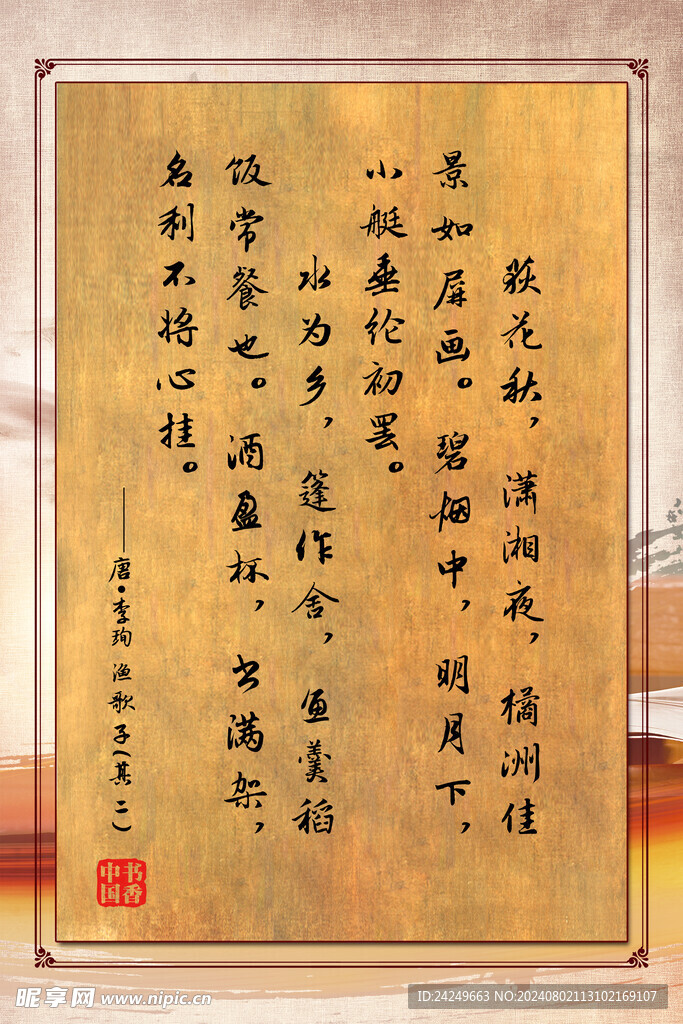 荻花秋，潇湘夜，橘洲佳
景如屏画。碧烟中，明月下，
小艇垂纶初罢。
水为乡，篷作舍，鱼羹稻
饭常餐也。酒盈杯，书满架，
名利不将心挂。
——唐·李珣 渔歌子(其二)
中国书香
昵享网 www.nipic.cn
ID:24249663 NO:20240802113102169107